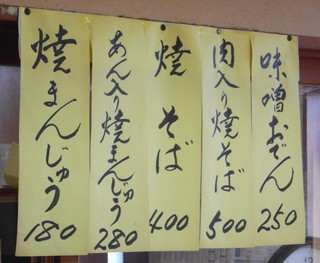 味噌おでん 250
肉入り焼そば 500
焼そば 400
あん入り焼まんじゅう 280
焼まんじゅう 180